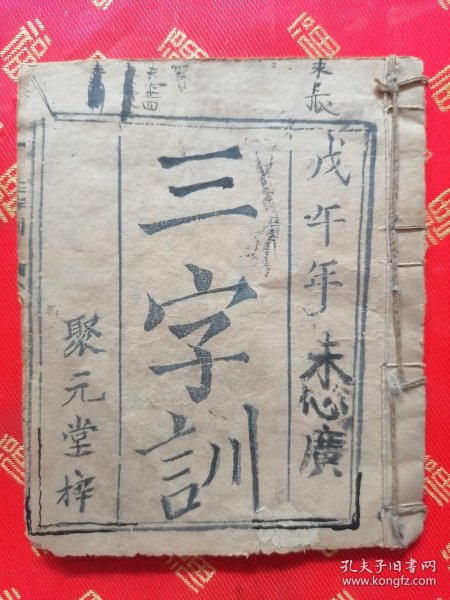 未長
戊午年
未心廣
三字訓
聚元堂梓
孔夫子旧书网
www.kongfz.com